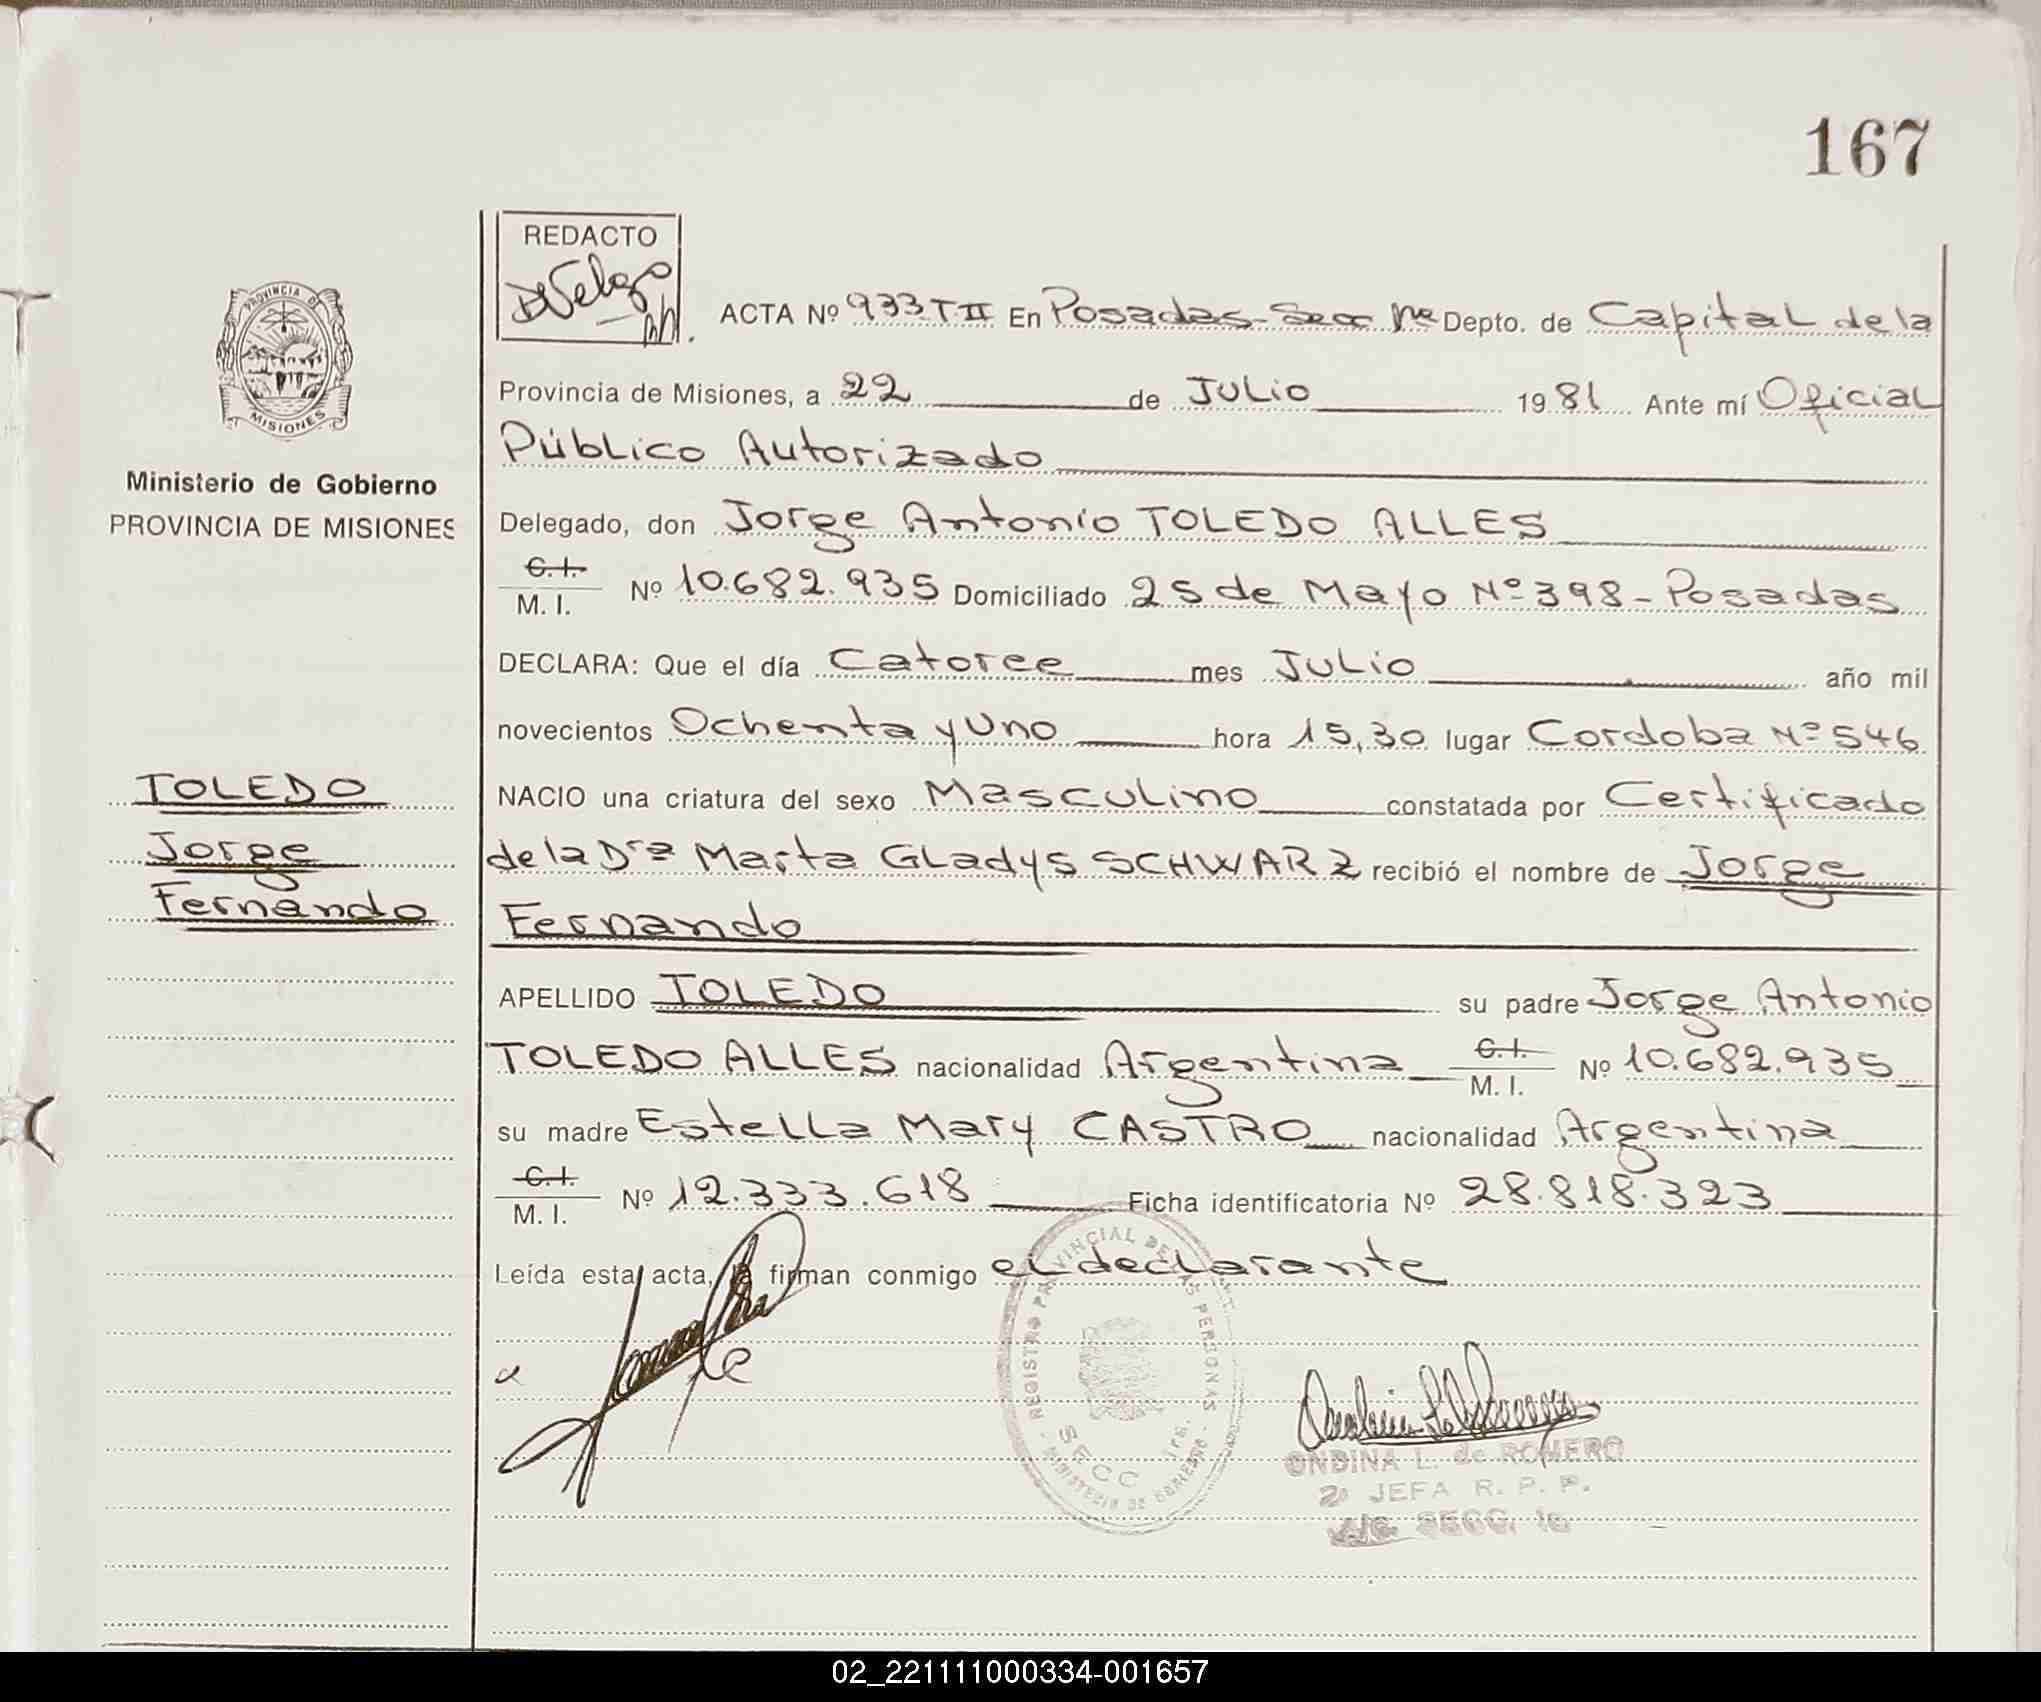 167
REDACTO
PROVINCIA DE
MISIONES
ACTA Nº 933 T II En Posadas-Secc 1ra Depto. de Capital de la
Provincia de Misiones, a 22 de Julio 1981 Ante mí Oficial
Público Autorizado
Ministerio de Gobierno
PROVINCIA DE MISIONES
Delegado, don Jorge Antonio TOLEDO ALLES
C.I.
M. I. Nº 10.682.935 Domiciliado 25 de Mayo Nº 398-Posadas
DECLARA: Que el día Catorce mes Julio año mil
novecientos Ochenta y Uno hora 15,30 lugar Cordoba Nº 546
TOLEDO
Jorge
Fernando
NACIO una criatura del sexo Masculino constatada por Certificado
de la Dra Marta Gladys SCHWARZ recibió el nombre de Jorge
Fernando
APELLIDO TOLEDO su padre Jorge Antonio
TOLEDO ALLES nacionalidad Argentina C.I. M. I. Nº 10.682.935
su madre Estella Mary CASTRO nacionalidad Argentina
C.I.
M. I. Nº 12.333.618 Ficha identificatoria Nº 28.818.323
Leída esta acta, la firman conmigo el declarante
REGISTRO PROVINCIAL DE LAS PERSONAS
SECC 1ra.
MINISTERIO DE GOBIERNO
ONDINA L. de ROMERO
2º JEFA R. P. P.
A/C. SECC. 1a
02_221111000334-001657